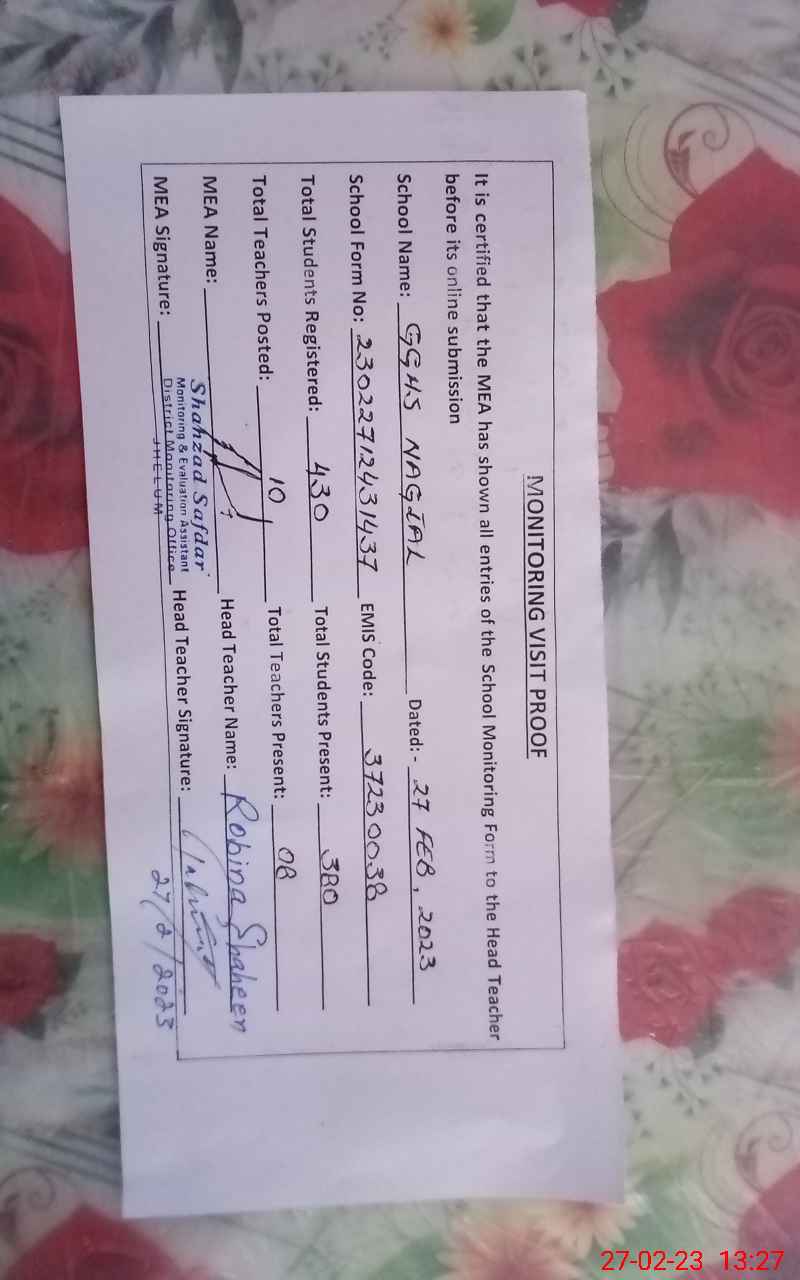 MONITORING VISIT PROOF
It is certified that the MEA has shown all entries of the School Monitoring Form to the Head Teacher
before its online submission
School Name: GGHS NAGIAL Dated:- 27 FEB, 2023
School Form No: 23022712431437 EMIS Code: 37230038
Total Students Registered: 430 Total Students Present: 380
Total Teachers Posted: 10 Total Teachers Present: 08
MEA Name: Head Teacher Name: Robina Shaheen
Shahzad Safdar
Monitoring & Evaluation Assistant
District Monitoring Office
JHELUM
MEA Signature: Head Teacher Signature:
27/2/2023
27-02-23 13:27